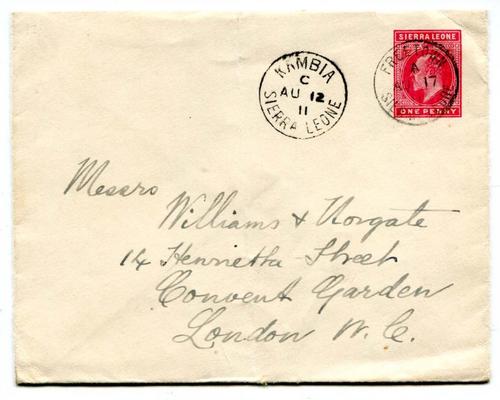 SIERRA LEONE
FREETOWN
A
17
SIERRA LEONE
ONE PENNY
KAMBIA
C
AU 12
11
SIERRA LEONE
Messrs
Williams & Norgate
14 Henrietta Street
Convent Garden
London W.C.